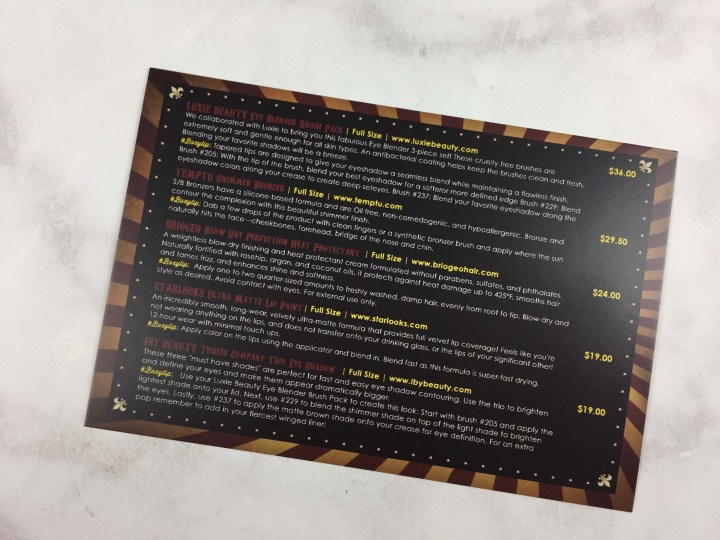 LUXIE BEAUTY EYE BLENDER BRUSH PACK | Full Size | www.luxiebeauty.com
We collaborated with Luxie to bring you this fabulous Eye Blender 3-piece set! These cruelty free brushes are $36.00
extremely soft and gentle enough for all skin types. An antibacterial coating helps keep the brushes clean and fresh.
Blending your favorite shadows will be a breeze.
#Boxylip: Tapered tips are designed to give your eyeshadow a seamless blend while maintaining a flawless finish.
Brush #205: With the tip of the brush, blend your best eyeshadow for a softer or more defined edge Brush #229: Blend
eyeshadow colors along your crease to create deep setoyes. Brush #237: Blend your favorite eyeshadow along the
TEMPTU SHIMMER BRONZER | Full Size | www.temptu.com
S/B Bronzers have a silicone-based formula and are Oil free, non-comedogenic, and hypoallergenic. Bronze and $29.50
contour the complexion with this beautiful shimmer finish.
#Boxylip: Dab a few drops of the product with clean fingers or a synthetic bronzer brush and apply where the sun
naturally hits the face---cheekbones, forehead, bridge of the nose and chin.
BRIOGEO BLOW DRY PERFECTION HEAT PROTECTANT | Full Size | www.briogeohair.com
A weightless blow-dry finishing and heat protectant cream formulated without parabens, sulfates, and phthalates. $24.00
Naturally fortified with rosehip, argan, and coconut oils, it protects against heat damage up to 425°F, smooths hair
and tames frizz, and enhances shine and softness.
#Boxylip: Apply one to two quarter-sized amounts to freshly washed, damp hair, evenly from root to tip. Blow-dry and
style as desired. Avoid contact with eyes. For external use only.
STARLOOKS ULTRA MATTE LIP PAINT | Full Size | www.starlooks.com
An incredibly smooth, long-wear, velvety ultra-matte formula that provides full velvet lip coverage! Feels like you're $19.00
not wearing anything on the lips, and does not transfer onto your drinking glass, or the lips of your significant other!
12-hour wear with minimal touch ups.
#Boxylip: Apply color on the lips using the applicator and blend in. Blend fast as this formula is super-fast drying.
IBY BEAUTY COMPANY TRIO EYE SHADOW | Full Size | www.ibybeauty.com
These three "must have shades" are perfect for fast and easy eye shadow contouring. Use the trio to brighten $19.00
and define your eyes and make them appear dramatically bigger.
#Boxylip: Use your Luxie Beauty Eye Blender Brush Pack to create this look: Start with brush #205 and apply the
lightest shade onto your lid. Next, use #229 to blend the shimmer shade on top of the light shade to brighten
the eyes. Lastly, use #237 to apply the matte brown shade onto your crease for eye definition. For an extra
pop remember to add in your fiercest winged liner!